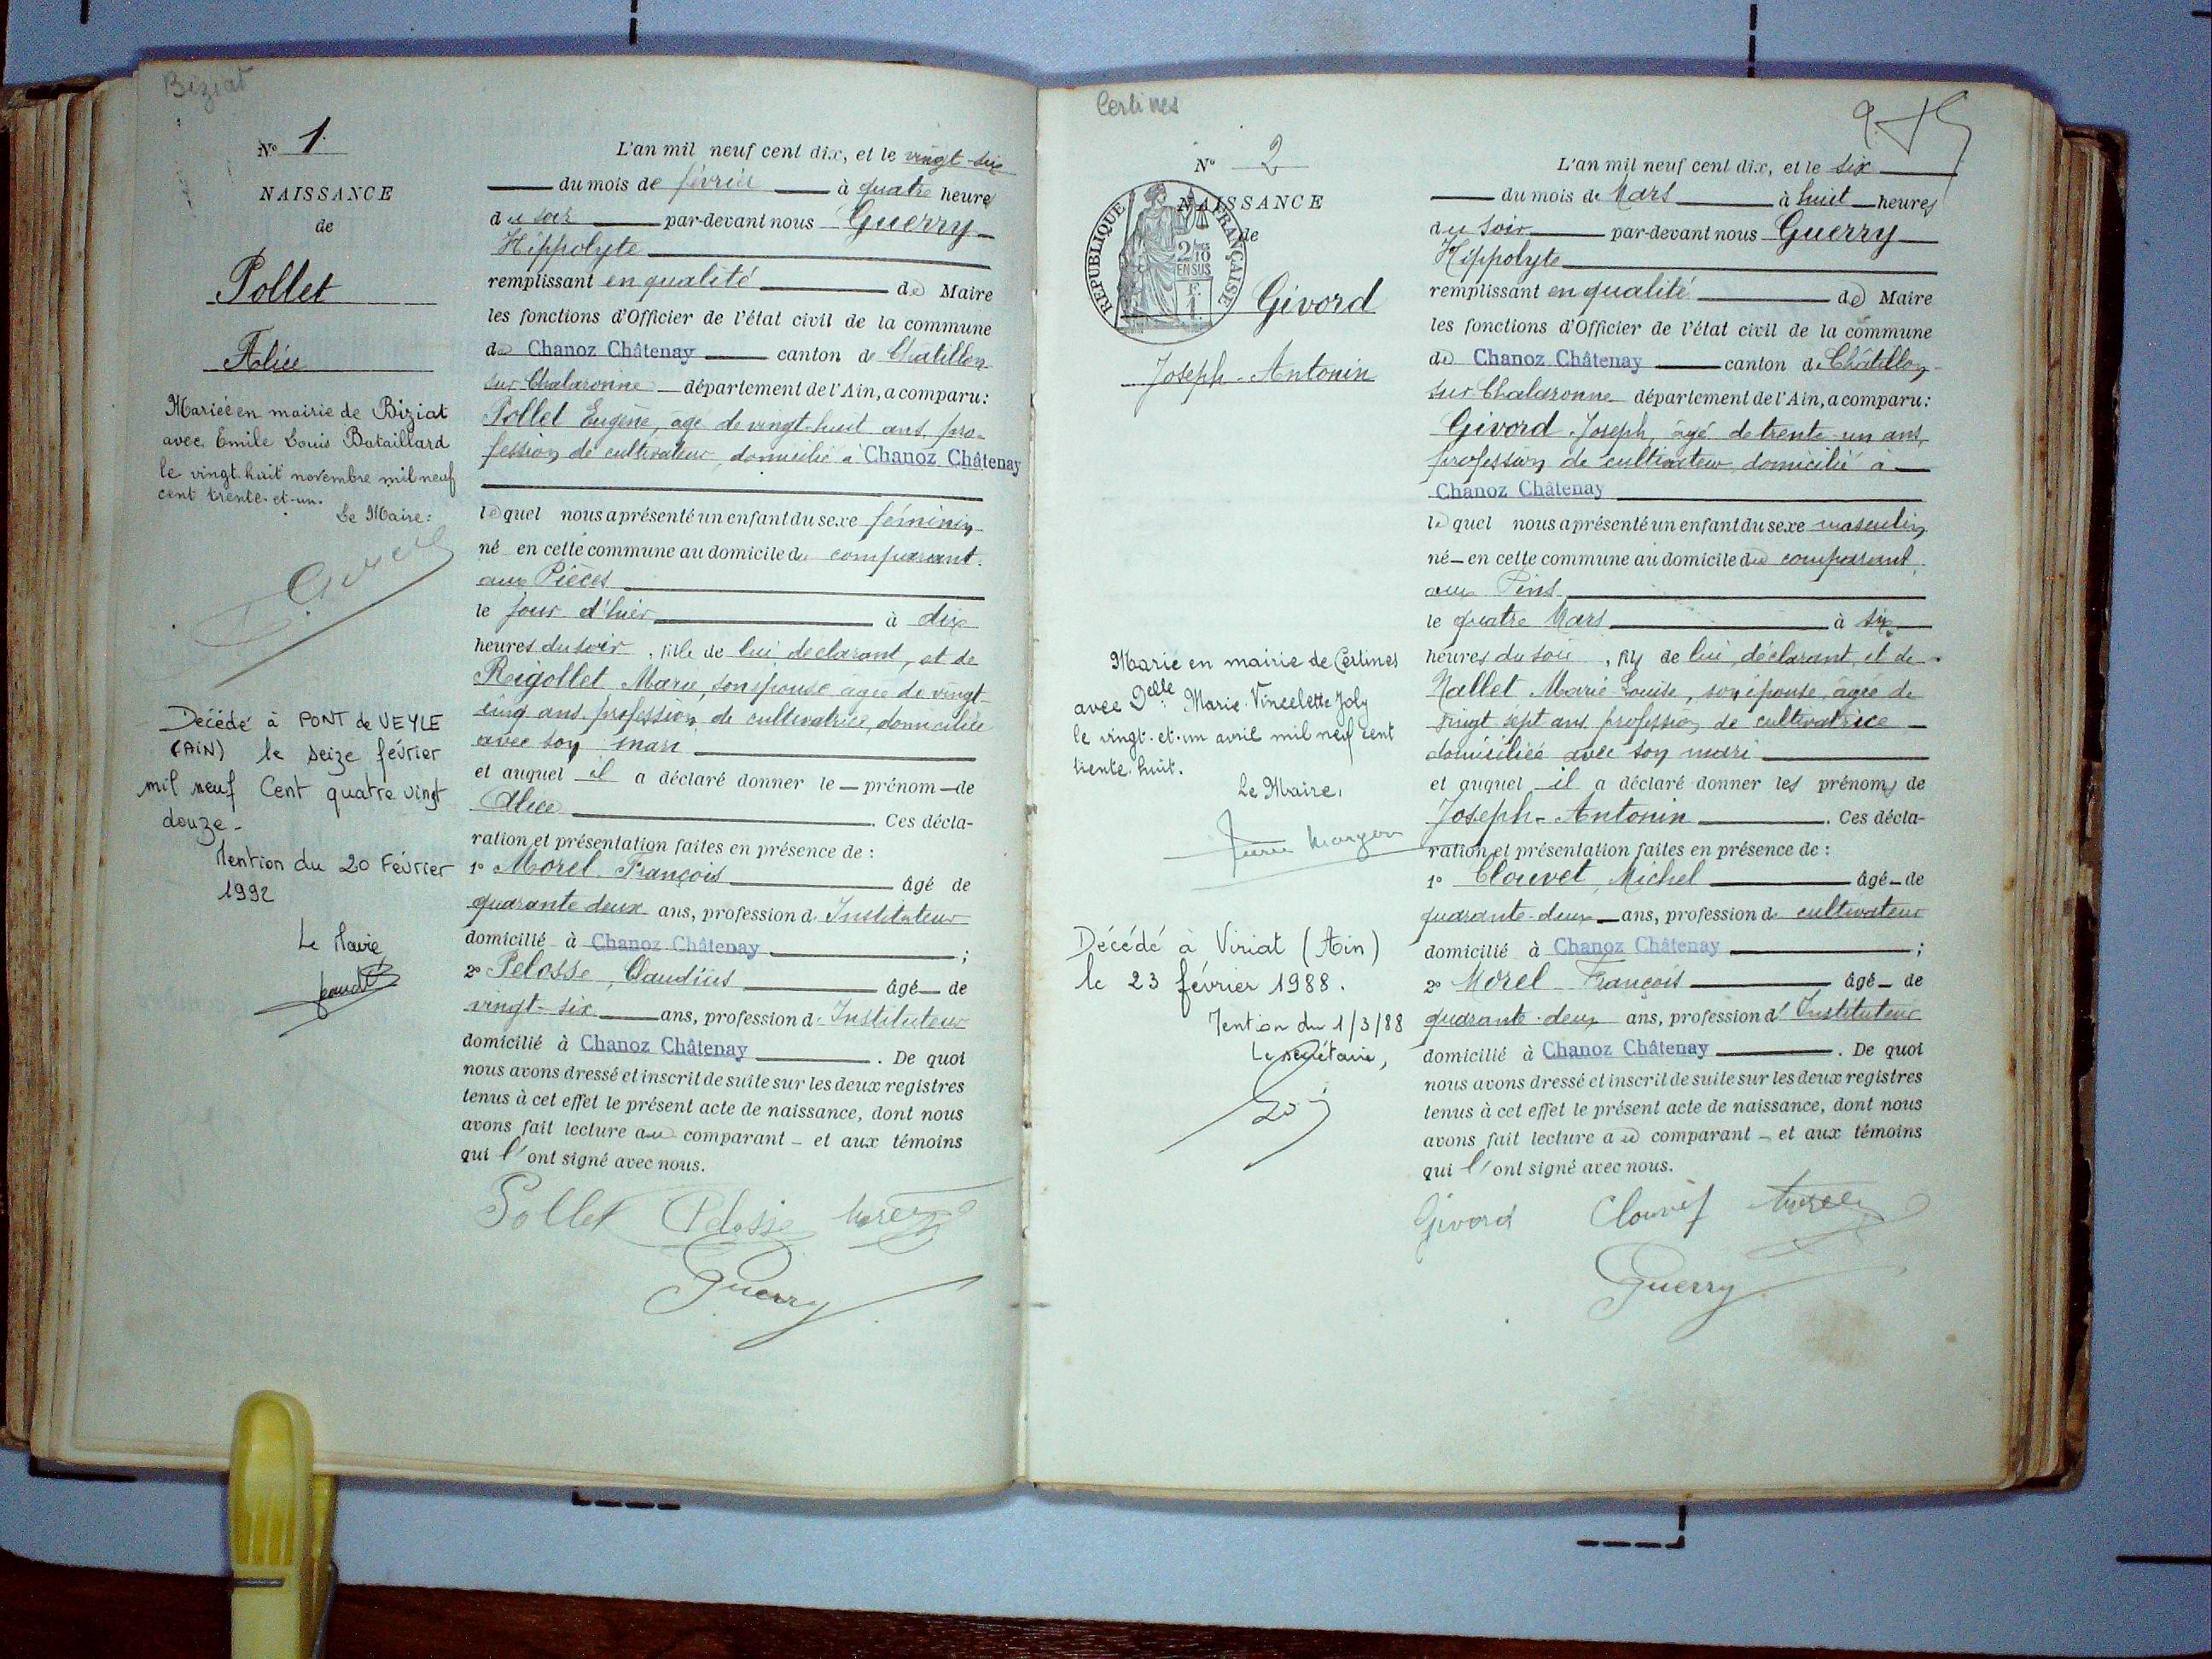 Biziat
N° 1.
NAISSANCE
de
Pollet
Alice
Mariée en mairie de Biziat
avec Emile Louis Bataillard
le vingt-huit novembre mil neuf
cent trente-et-un.
Le Maire:
Décédé à PONT de VEYLE
(AIN) le seize février
mil neuf Cent quatre vingt
douze-
Mention du 20 Février
1992
Le Maire
L'an mil neuf cent dix, et le vingt-six
du mois de février à quatre heure
du soir par-devant nous Guerry
Hippolyte
remplissant en qualité de Maire
les fonctions d'Officier de l'état civil de la commune
de Chanoz Châtenay canton de Chatillon
sur Chalaronne département de l'Ain, a comparu:
Pollet Eugène, âgé de vingt-huit ans, pro-
fession de cultivateur, domicilié à Chanoz Châtenay
lequel nous a présenté un enfant du sexe féminin
né en cette commune au domicile du comparant.
aux Pièces
le jour d'hier à dix
heures du soir, fille de lui déclarant, et de
Reigollet Marie, son épouse âgée de vingt-
cinq ans, profession de cultivatrice, domiciliée
avec son mari
et auquel il a déclaré donner le prénom de
Alice. Ces décla-
ration et présentation faites en présence de :
1° Morel François âgé de
quarante deux ans, profession d'Instituteur
domicilié à Chanoz Châtenay ;
2° Pelosse, Claudius âgé de
vingt-six ans, profession d'Instituteur
domicilié à Chanoz Châtenay. De quoi
nous avons dressé et inscrit de suite sur les deux registres
tenus à cet effet le présent acte de naissance, dont nous
avons fait lecture au comparant et aux témoins
qui l'ont signé avec nous.
Pollet Pelosse Morel
Guerry
Certines
N° 2
NAISSANCE
de
RÉPUBLIQUE FRANÇAISE
2/10
EN SUS
Givord
Joseph-Antonin
Marié en mairie de Certines
avec Delle Marie-Vincelette Joly
le vingt-et-un avril mil neuf cent
trente-huit.
Le Maire,
Décédé à Viriat (Ain)
le 23 février 1988.
Mention du 1/3/88
Le secrétaire,
L'an mil neuf cent dix, et le six
du mois de Mars à huit heures
du soir par-devant nous Guerry
Hippolyte
remplissant en qualité de Maire
les fonctions d'Officier de l'état civil de la commune
de Chanoz Châtenay canton de Châtillon
sur Chalaronne département de l'Ain, a comparu:
Givord Joseph, âgé de trente-un ans,
profession de cultivateur, domicilié à
Chanoz Châtenay
lequel nous a présenté un enfant du sexe masculin
né en cette commune au domicile du comparant,
aux Pins
le quatre Mars à six
heures du soir, fils de lui, déclarant, et de
Nallet Marie Louise, son épouse, âgée de
vingt sept ans, profession de cultivatrice
domiciliée avec son mari
et auquel il a déclaré donner les prénoms de
Joseph-Antonin. Ces décla-
ration et présentation faites en présence de :
1° Clouvet, Michel âgé de
quarante-deux ans, profession de cultivateur
domicilié à Chanoz Châtenay ;
2° Morel François âgé de
quarante-deux ans, profession d'Instituteur
domicilié à Chanoz Châtenay. De quoi
nous avons dressé et inscrit de suite sur les deux registres
tenus à cet effet le présent acte de naissance, dont nous
avons fait lecture au comparant et aux témoins
qui l'ont signé avec nous.
Givord Morel
Guerry